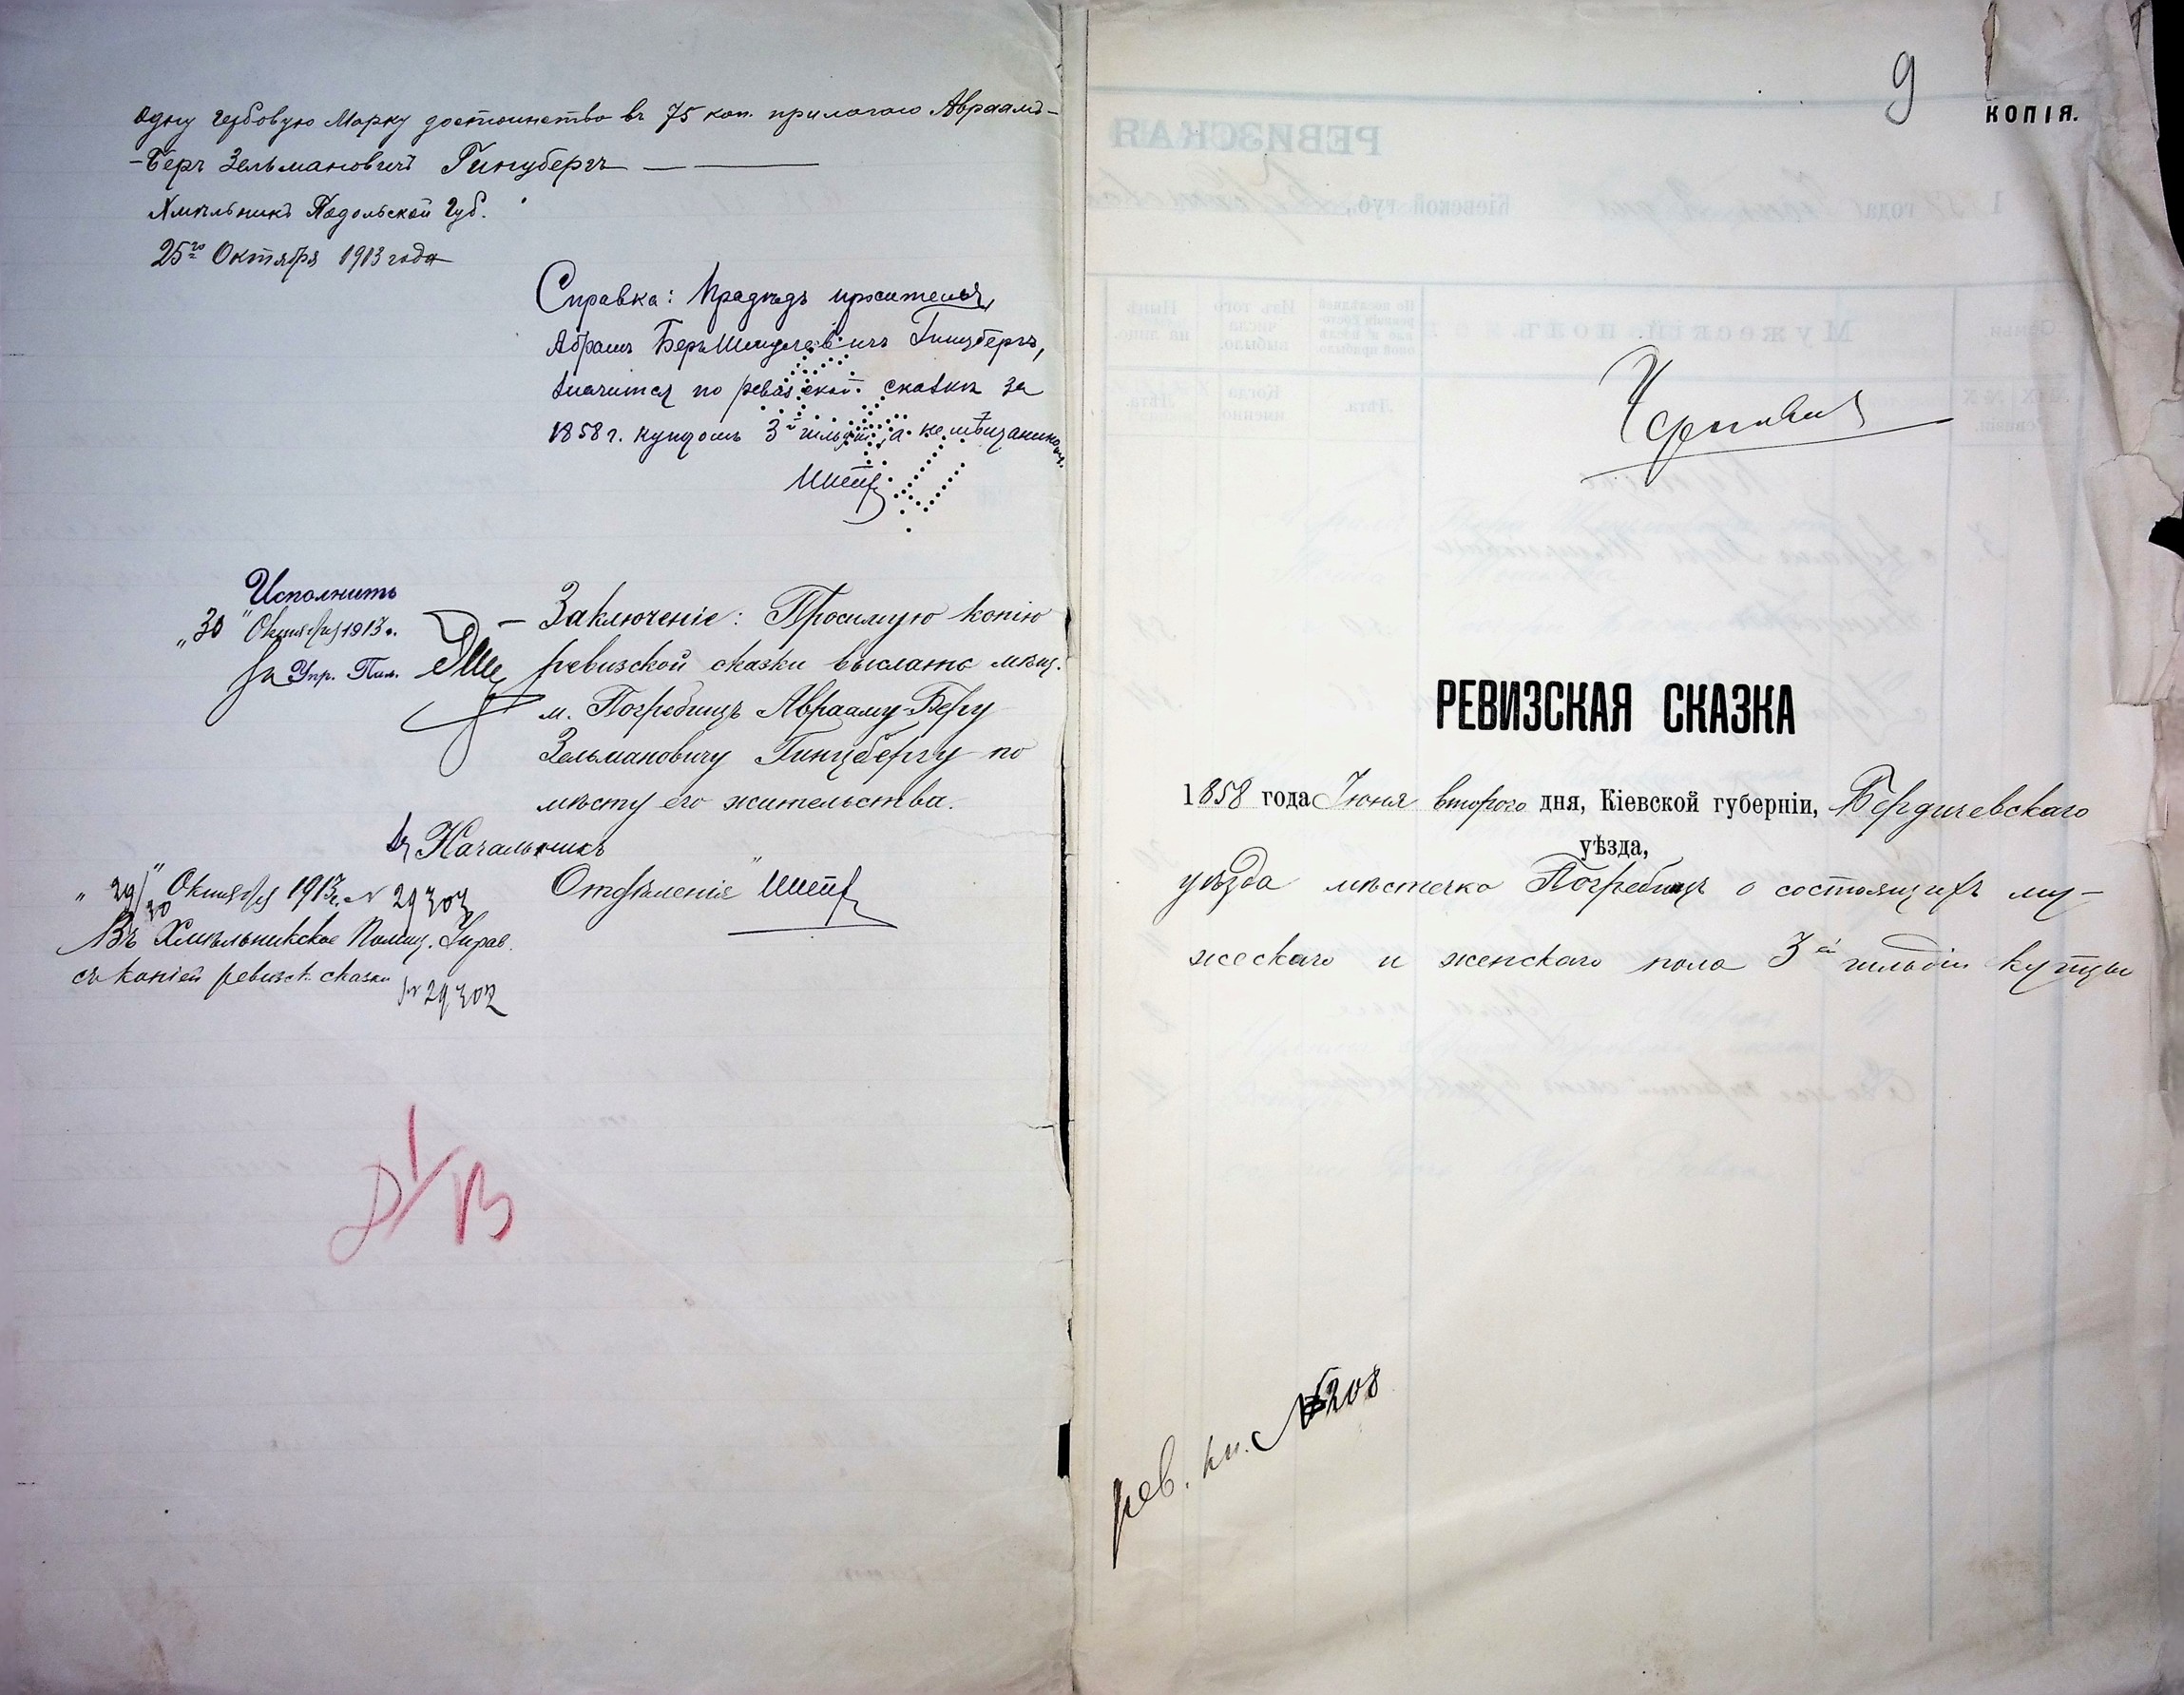 Одну гербовую Марку достоинство въ 75 коп. прилогаю Авраамъ-
-Беръ Зельмановичъ Гинцбергъ
Хмѣльникъ Подольской Губ.
25го Октября 1913 года
Справка: Прадѣдъ просителя,
Абрамъ Беръ Шмулевичъ Гинцбергъ,
значится по ревизской сказкѣ за
1858 г. купцомъ 3й гильдіи, а не мѣщаниномъ.
Исполнить
„30" Октября 1913 г.
За Упр. Пал.
Заключеніе: Просимую копію
ревизской сказки выслать мѣщ.
м. Погребищъ Аврааму-Беру
Зельмановичу Гинцбергу по
мѣсту его жительства.
Начальникъ
Отдѣленія
„29/30" Октября 1913 г. № 29303
Въ Хмѣльникское Полиц. Управ.
съ копіей ревизск. сказки
№ 29302
9
КОПІЯ.
РЕВИЗСКАЯ СКАЗКА
1858 года Іюня второго дня, Кіевской губерніи, Бердичевскаго
уѣзда,
уѣзда мѣстечка Погребищъ о состоящихъ му-
жескаго и женскаго пола 3ей гильдіи купцы
рев. кн. № 208